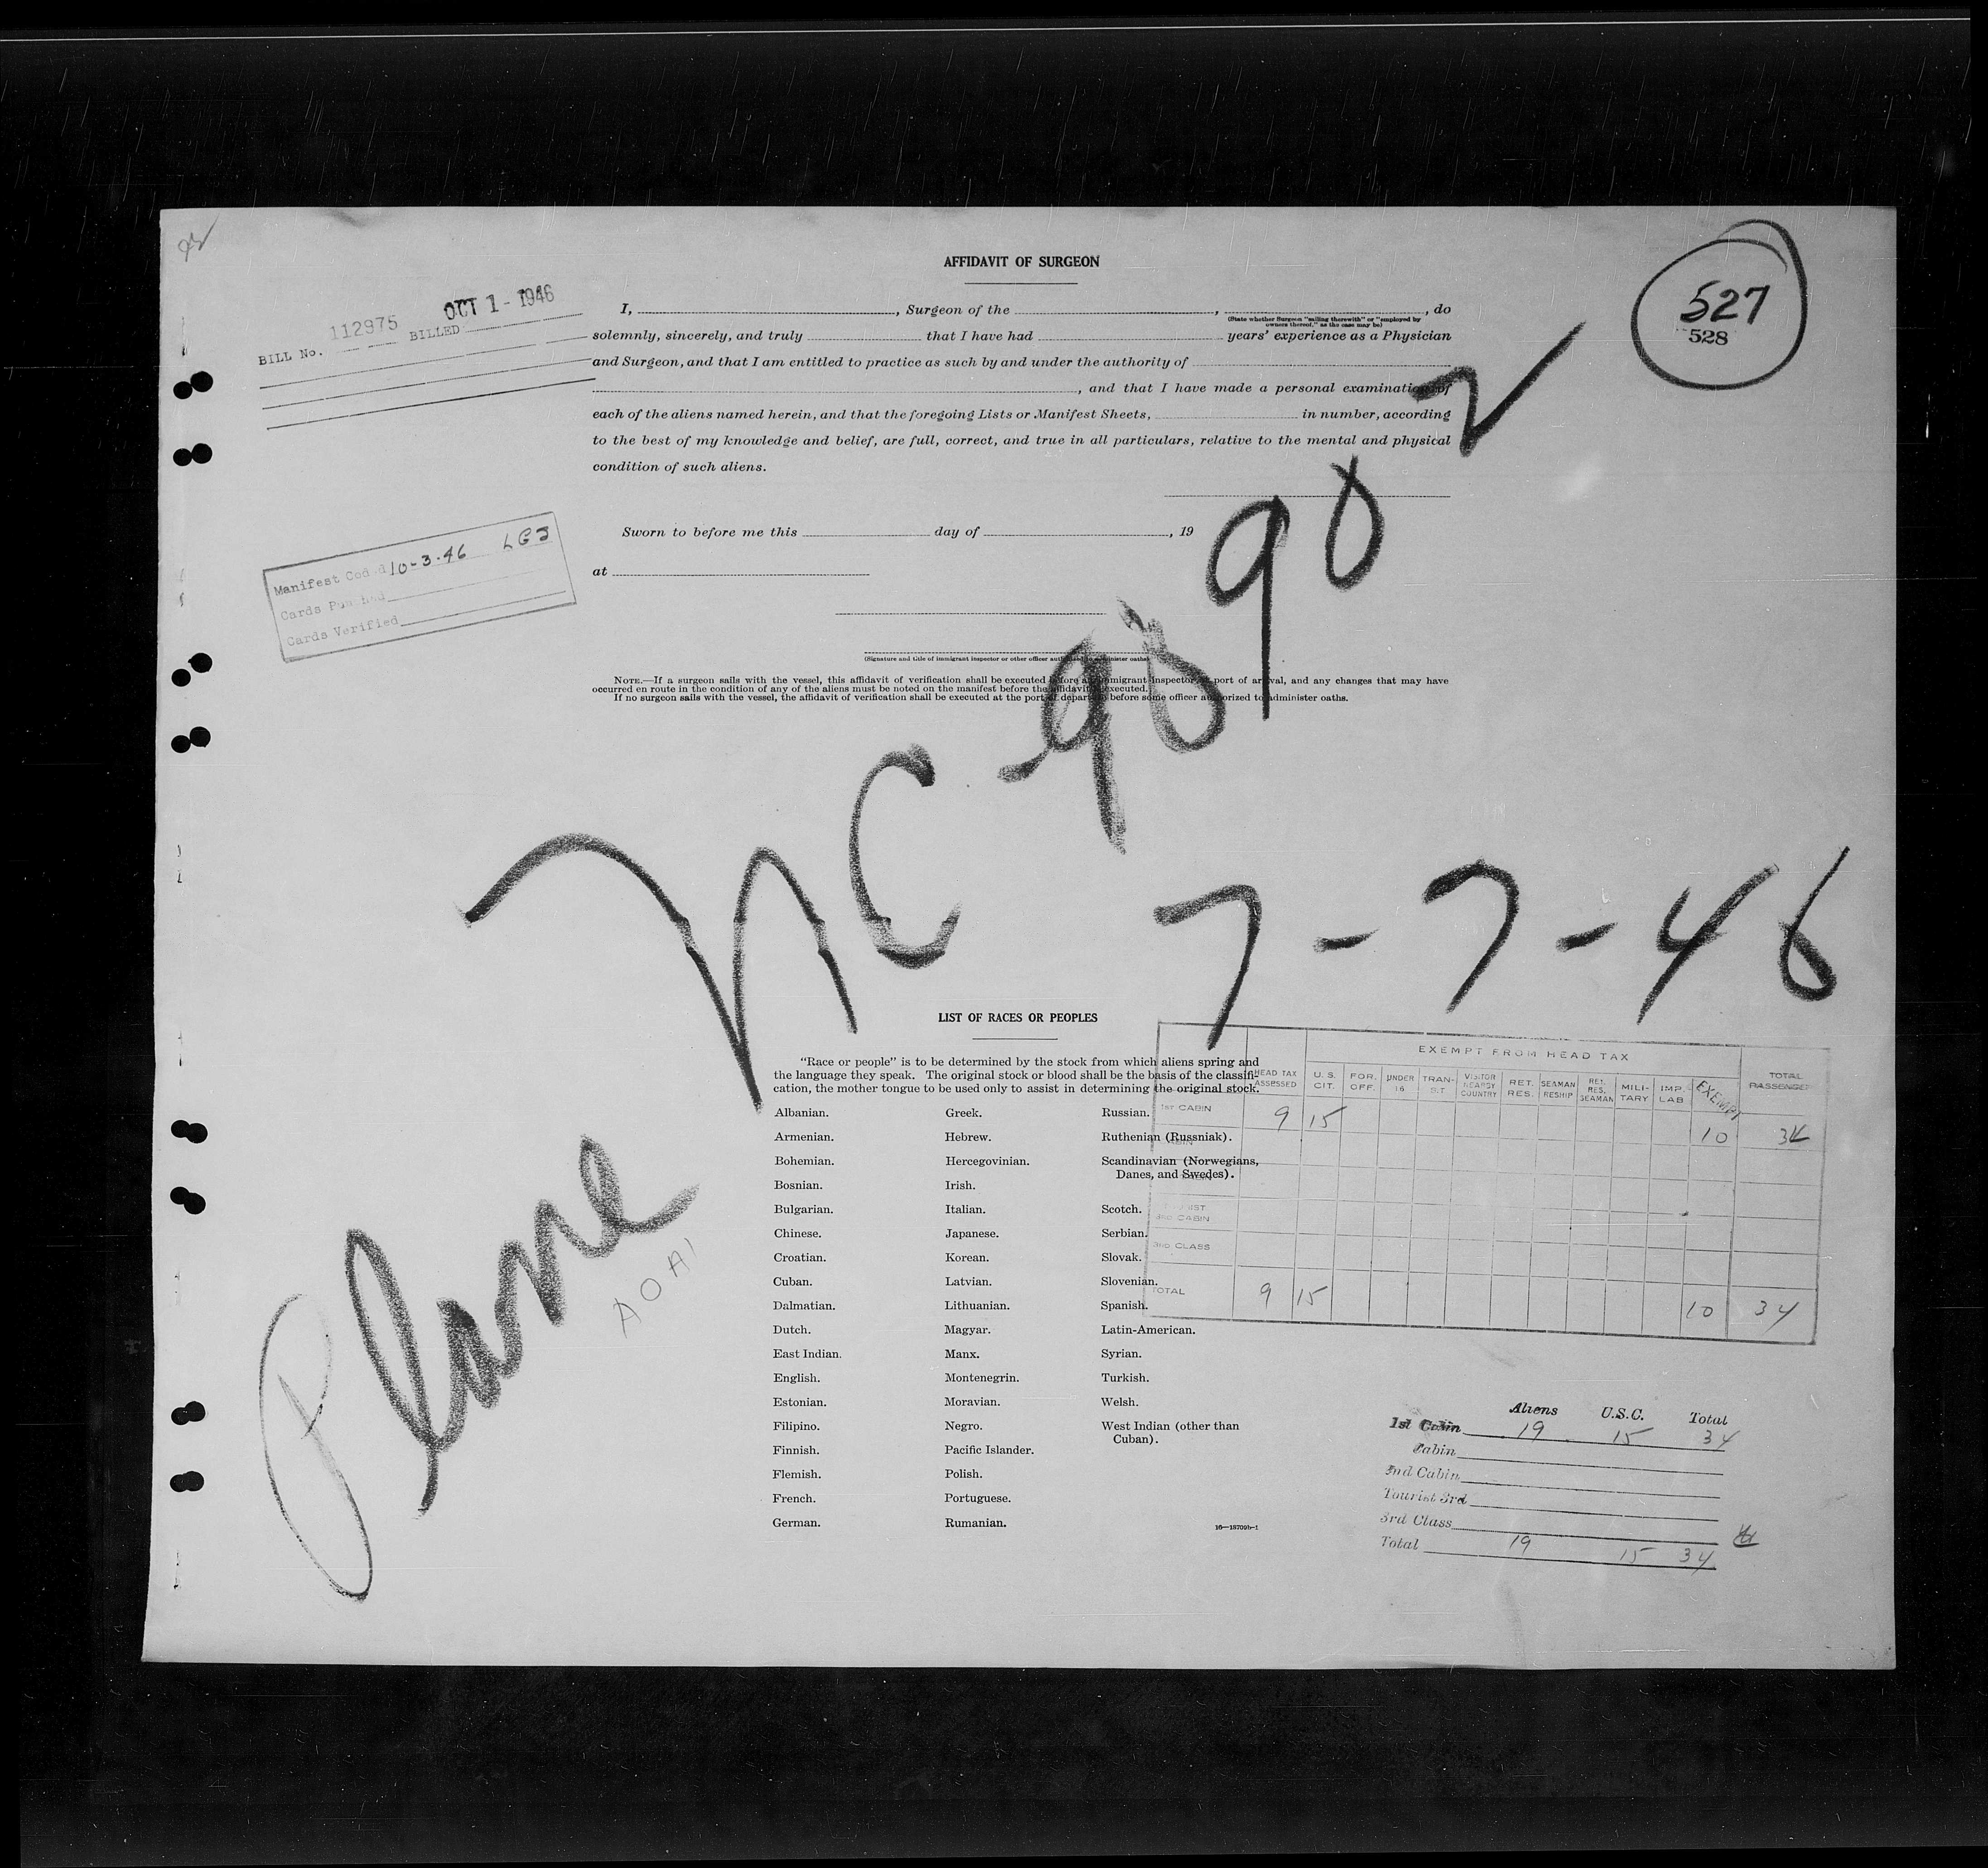 AFFIDAVIT OF SURGEON
527
528
OCT 1 - 1946
BILL No. 112975 BILLED
I, , Surgeon of the , , do
(State whether Surgeon "sailing therewith" or "employed by
owners thereof," as the case may be)
solemnly, sincerely, and truly that I have had years' experience as a Physician
and Surgeon, and that I am entitled to practice as such by and under the authority of
, and that I have made a personal examination of
each of the aliens named herein, and that the foregoing Lists or Manifest Sheets, in number, according
to the best of my knowledge and belief, are full, correct, and true in all particulars, relative to the mental and physical
condition of such aliens.
Manifest Coded 10-3-46 LGJ
Cards Punched
Cards Verified
Sworn to before me this day of , 19
at
(Signature and title of immigrant inspector or other officer authorized to administer oaths)
NOTE.—If a surgeon sails with the vessel, this affidavit of verification shall be executed before an immigrant inspector at port of arrival, and any changes that may have
occurred en route in the condition of any of the aliens must be noted on the manifest before the affidavit is executed.
If no surgeon sails with the vessel, the affidavit of verification shall be executed at the port of departure before some officer authorized to administer oaths.
NC-98902
7-7-46
Plane
AOA
LIST OF RACES OR PEOPLES
"Race or people" is to be determined by the stock from which aliens spring and
the language they speak. The original stock or blood shall be the basis of the classifi-
cation, the mother tongue to be used only to assist in determining the original stock.
Albanian.
Armenian.
Bohemian.
Bosnian.
Bulgarian.
Chinese.
Croatian.
Cuban.
Dalmatian.
Dutch.
East Indian.
English.
Estonian.
Filipino.
Finnish.
Flemish.
French.
German.
Greek.
Hebrew.
Hercegovinian.
Irish.
Italian.
Japanese.
Korean.
Latvian.
Lithuanian.
Magyar.
Manx.
Montenegrin.
Moravian.
Negro.
Pacific Islander.
Polish.
Portuguese.
Rumanian.
Russian.
Ruthenian (Russniak).
Scandinavian (Norwegians,
Danes, and Swedes).
Scotch.
Serbian.
Slovak.
Slovenian.
Spanish.
Latin-American.
Syrian.
Turkish.
Welsh.
West Indian (other than
Cuban).
16—18709b-1
EXEMPT FROM HEAD TAX
HEAD TAX ASSESSED U. S. CIT. FOR. OFF. UNDER 16 TRAN- SIT VISITOR NEARBY COUNTRY RET. RES. SEAMAN RESHIP RET. RES. SEAMAN MILI- TARY IMP. LAB EXEMPT TOTAL PASSENGER
1ST CABIN 9 15 10 34
CABIN
3RD CABIN
3RD CLASS
TOTAL 9 15 10 34
Aliens U.S.C. Total
1st Cabin 19 15 34
Cabin
2nd Cabin
Tourist 3rd
3rd Class
Total 19 15 34